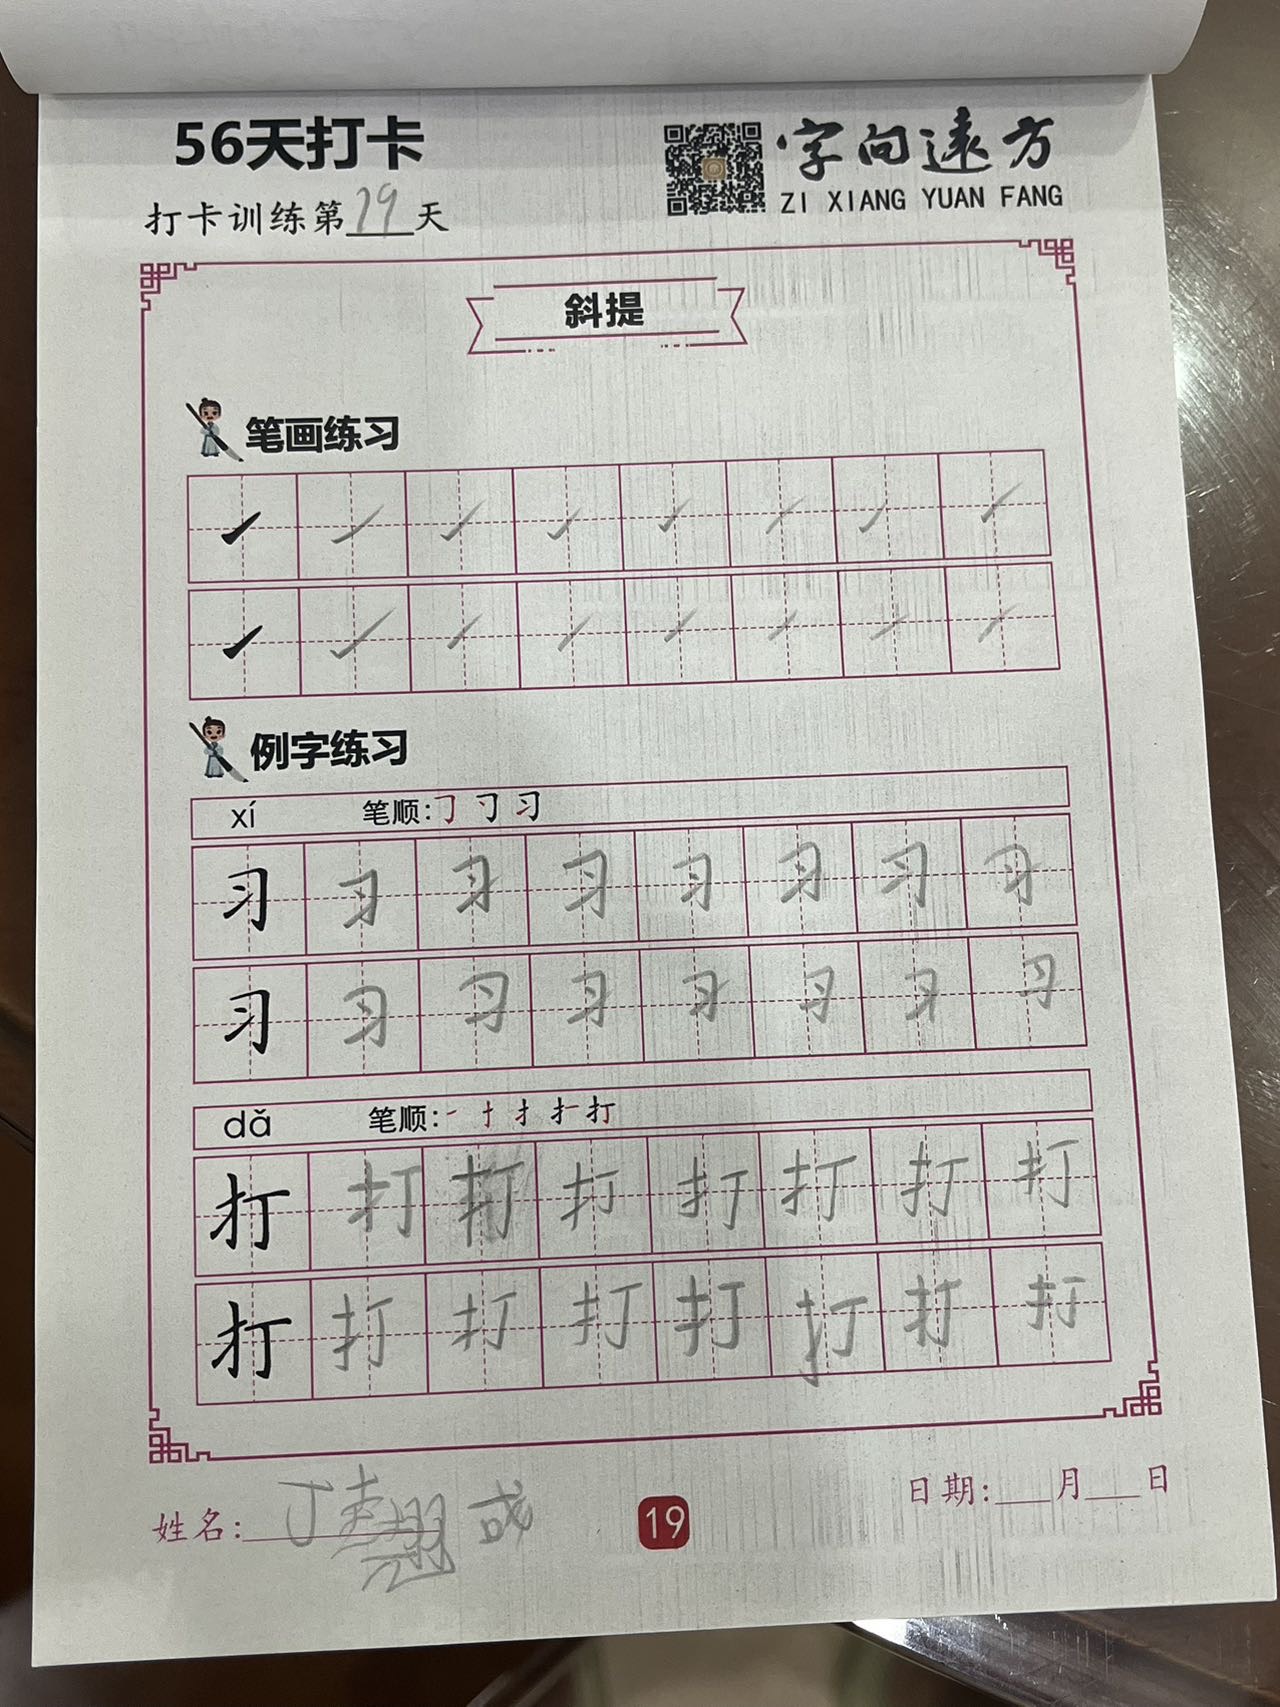 56天打卡
字向远方
ZI XIANG YUAN FANG
打卡训练第19天
斜提
笔画练习
例字练习
xí 笔顺:㇆ 刁 习
习 习 习 习 习 习 习 习
习 习 习 习 习 习 习 习
dǎ 笔顺:一 十 扌 扌一 打
打 打 打 打 打 打 打 打
打 打 打 打 打 打 打 打
姓名: 丁 成
19
日期:___月___日